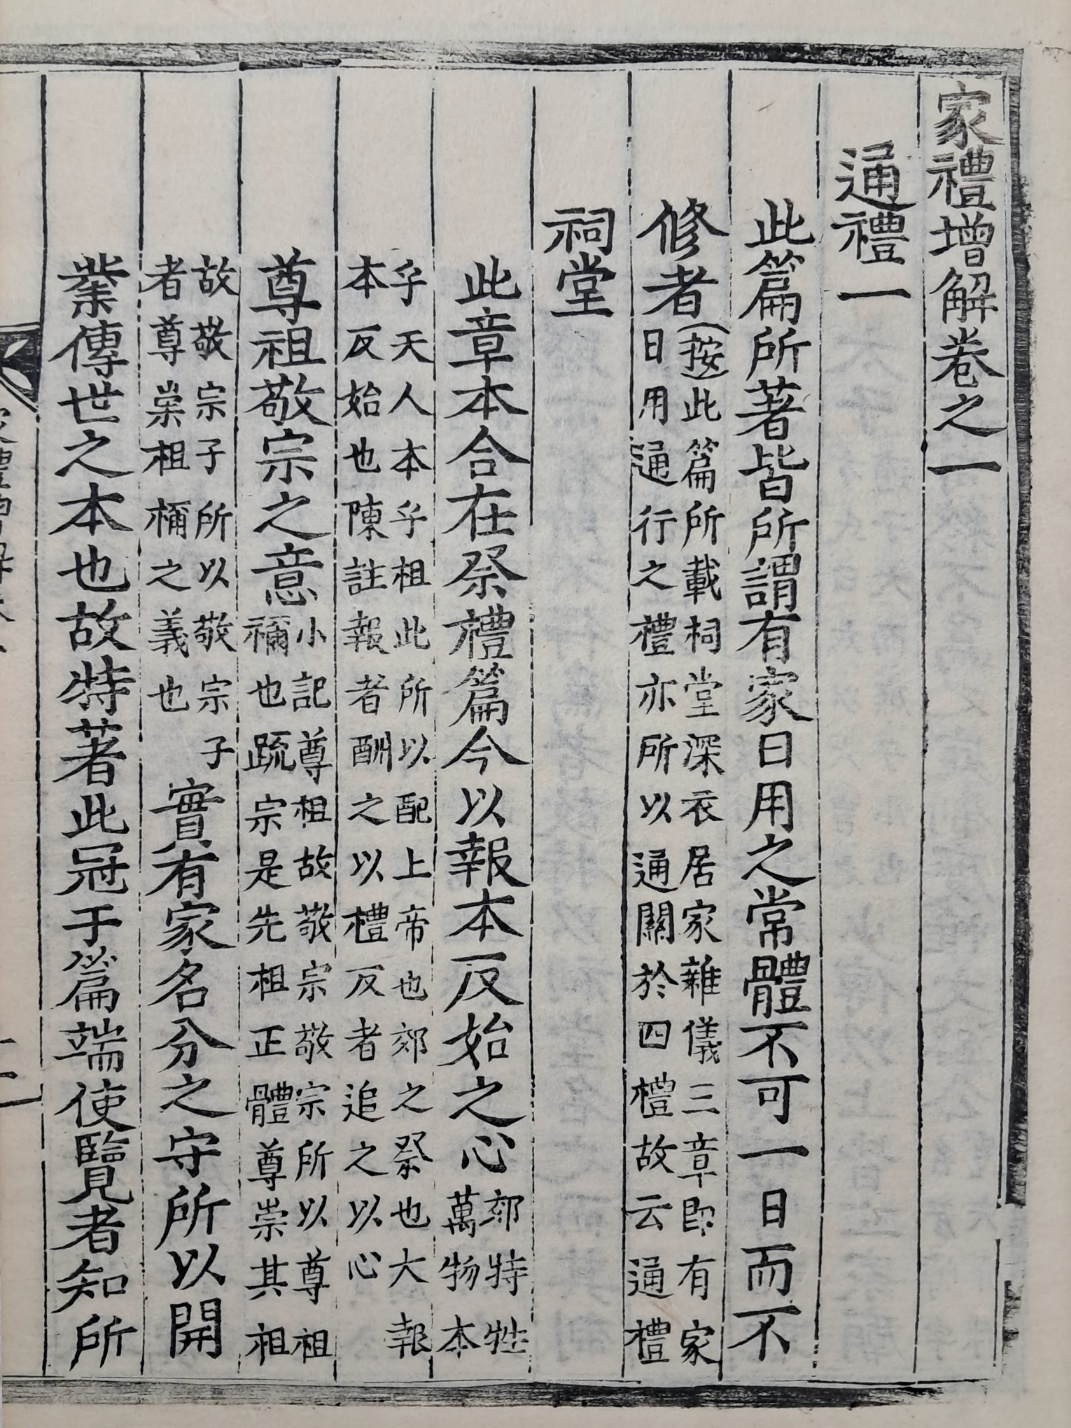 家禮增解卷之一
通禮一
此篇所著皆所謂有家日用之常體不可一日而不
修者(按)此篇所載祠堂深衣居家雜儀三章卽有家
日用通行之禮亦所以通關於四禮故云通禮
祠堂
此章本合在祭禮篇今以報本反始之心郊特牲
萬物本
乎天人本乎祖此所以配上帝也郊之祭也大報
本反始也陳註報者酬之以禮反者追之以心
尊祖敬宗之意小記尊祖故敬宗敬宗所以尊祖
禰也疏宗是先祖正體尊崇其祖
故敬宗子所以敬宗子
者尊崇祖禰之義也
實有家名分之守所以開
業傳世之本也故特著此冠于篇端使覽者知所